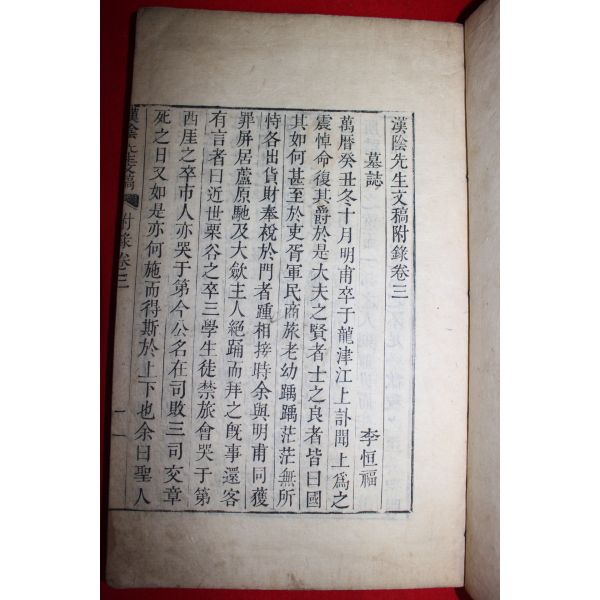 漢陰先生文稿附錄卷三
墓誌 李恒福
萬曆癸丑冬十月明甫卒于龍津江上訃聞上爲之
震悼命復其爵於是大夫之賢者士之良者皆曰國
其如何甚至於吏胥軍民商旅老幼踽踽茫茫無所
恃各出貨財奉梲於門者踵相接時余與明甫同獲
罪屏居蘆原馳及大斂主人絕踊而拜之旣事還客
有言者曰近世栗谷之卒三學生徒禁旅會哭于第
西厓之卒市人亦哭于第今公名在司敗三司交章
死之日又如是亦何施而得斯於上下也余曰聖人
漢陰先生文稿 附錄卷三 一